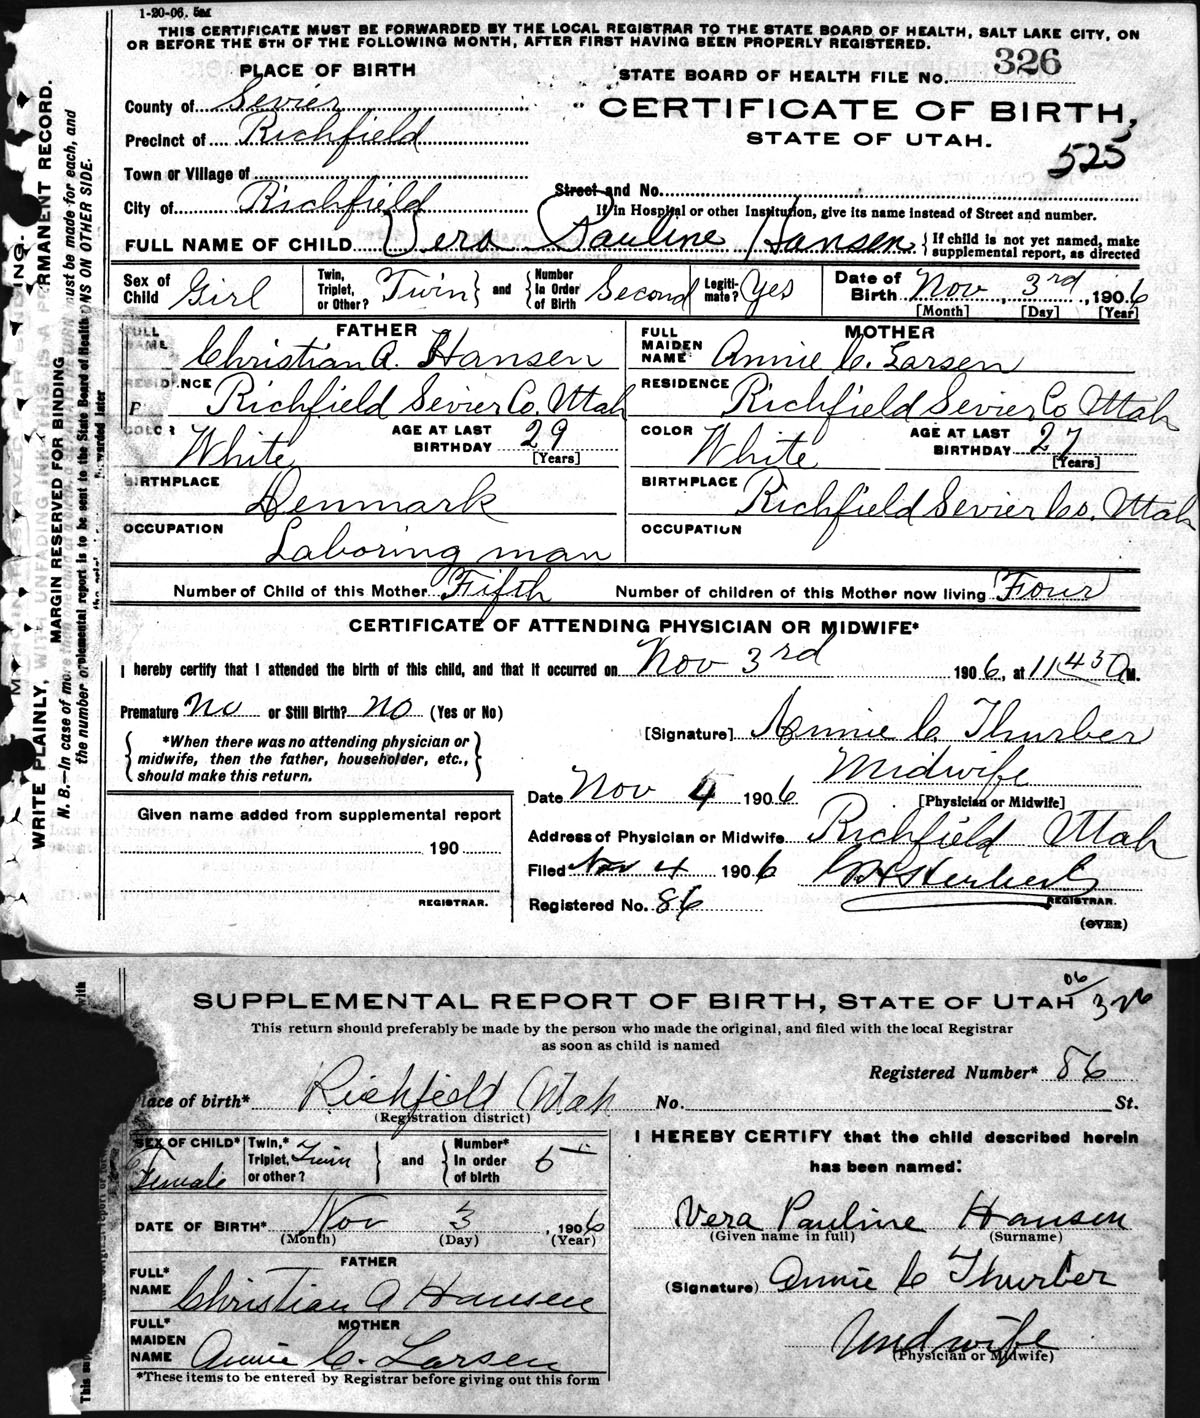 1-20-06. 5M
THIS CERTIFICATE MUST BE FORWARDED BY THE LOCAL REGISTRAR TO THE STATE BOARD OF HEALTH, SALT LAKE CITY, ON
OR BEFORE THE 5TH OF THE FOLLOWING MONTH, AFTER FIRST HAVING BEEN PROPERLY REGISTERED.
PLACE OF BIRTH
STATE BOARD OF HEALTH FILE No. 326
County of Sevier
CERTIFICATE OF BIRTH,
Precinct of Richfield
STATE OF UTAH.
525
Town or Village of
Street and No.
City of Richfield
If in Hospital or other Institution, give its name instead of Street and number.
FULL NAME OF CHILD Vera Pauline Hansen { If child is not yet named, make supplemental report, as directed
Sex of Child Girl Twin, Triplet, or Other? Twin } and { Number In Order of Birth Second Legiti- mate? Yes Date of Birth Nov 3rd, 1906
[Month] [Day] [Year]
FATHER
MOTHER
FULL NAME Christian A. Hansen
FULL MAIDEN NAME Annie C. Larsen
RESIDENCE Richfield Sevier Co. Utah
RESIDENCE Richfield Sevier Co Utah
COLOR White AGE AT LAST BIRTHDAY 29 [Years]
COLOR White AGE AT LAST BIRTHDAY 27 [Years]
BIRTHPLACE Denmark
BIRTHPLACE Richfield Sevier Co. Utah
OCCUPATION Laboring man
OCCUPATION
Number of Child of this Mother Fifth Number of children of this Mother now living Four
CERTIFICATE OF ATTENDING PHYSICIAN OR MIDWIFE*
I hereby certify that I attended the birth of this child, and that it occurred on Nov 3rd 1906, at 11 45 A M.
Premature no or Still Birth? no (Yes or No)
[Signature] Annie C. Thurber
{ *When there was no attending physician or midwife, then the father, householder, etc., should make this return. }
Midwife
[Physician or Midwife]
Date Nov 4 1906
Given name added from supplemental report
Address of Physician or Midwife Richfield Utah
190
Filed Nov 4 1906
REGISTRAR.
REGISTRAR.
Registered No. 86
(OVER)
MARGIN RESERVED FOR BINDING
WRITE PLAINLY, WITH UNFADING INK—THIS IS A PERMANENT RECORD.
SUPPLEMENTAL REPORT OF BIRTH, STATE OF UTAH 06/326
This return should preferably be made by the person who made the original, and filed with the local Registrar
as soon as child is named
Registered Number* 86
Place of birth* Richfield Utah No. St.
(Registration district)
SEX OF CHILD* Female Twin,* Triplet, or other? Twin } and { Number* In order of birth 5
I HEREBY CERTIFY that the child described herein
has been named:
DATE OF BIRTH* Nov 3, 1906
(Month) (Day) (Year)
Vera Pauline Hansen
(Given name in full) (Surname)
FATHER
FULL* NAME Christian A Hansen
(Signature) Annie C Thurber
MOTHER
FULL* MAIDEN NAME Annie C. Larsen
Midwife
(Physician or Midwife)
*These items to be entered by Registrar before giving out this form